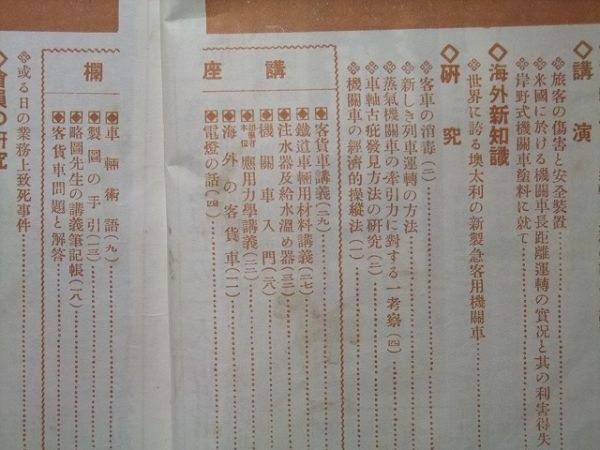 ◇講演
※旅客の傷害と安全裝置
※米國に於ける機關車長距離運轉の實況と其の利害得失
※岸野式機關車塗料に就て
◇海外新知識
※世界に誇る墺太利の新製急客用機關車
◇研究
※客車の消毒(二)
※新しき列車運轉の方法
※蒸氣機關車の牽引力に對する一考察(四)
※車軸古疵發見方法の研究(二)
※機關車の經濟的操縱法(二)
講座
◆客貨車講義(二九)
◆鐵道車輛用材料講義(二七)
◆注水器及給水溫め器(三二)
◆機關車入門(二八)
◆應用力學講義(三二)
◆海外の客貨車(一一)
◆電燈の話(四)
欄
◆車輛術語(九)
◆製圖の手引(一三)
◆略圖先生の講義筆記帳(一八)
◆客貨車問題と解答
◇會員の研究
※或る日の業務上致死事件